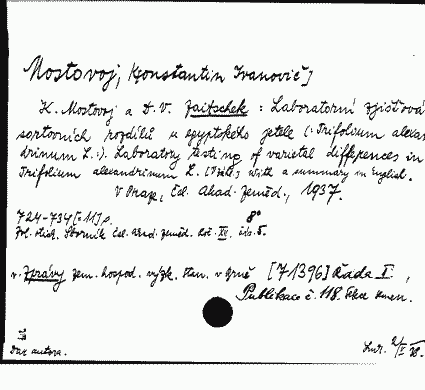 Mostovoj, K[onstantin Ivanovič]
K. Mostovoj a D. V. Zaitschek : Laboratorní zjišťová
sortovních rozdílů u egyptského jetele (:Trifolium alexan
drinum L.:). Laboratory testing of varietal differences in
Trifolium alexandrinum L. With a summary in English.
V Praze, Čsl. Akad. zeměd., 1937.
724-734 [=11] s. 8°
Zvl. otisk. Sborník Čsl. Akad. zeměd. Roč. XII. čís. 5.
v Zprávy zem. hospod. výzk. stan. v Brně [71396] Řada I.,
Publikace č. 118.
Dar autora. 2/II 38.